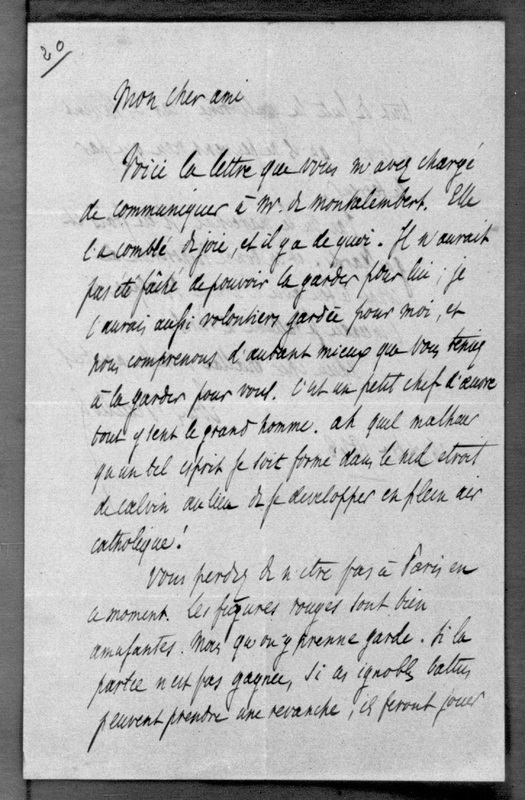 20
Mon cher ami
Voici la lettre que vous m'avez chargé
de communiquer à Mr. de Montalembert. Elle
l'a comblé de joie, et il y a de quoi. Il n'aurait
pas été fâché de pouvoir la garder pour lui ; je
l'aurais aussi volontiers gardée pour moi, et
nous comprenons d'autant mieux que vous teniez
à la garder pour vous. C'est un petit chef d'œuvre
tout y sent le grand homme. ah quel malheur
qu'un bel esprit se soit formé dans le nid étroit
de calvin au lieu de se developper en plein air
catholique !
Vous perdez de n'etre pas à Paris en
ce moment. Les figures rouges sont bien
amusantes. Mais qu'on y prenne garde. Si la
partie n'est pas gagnée, si ces ignobles battus
peuvent prendre une revanche, ils feront jouer